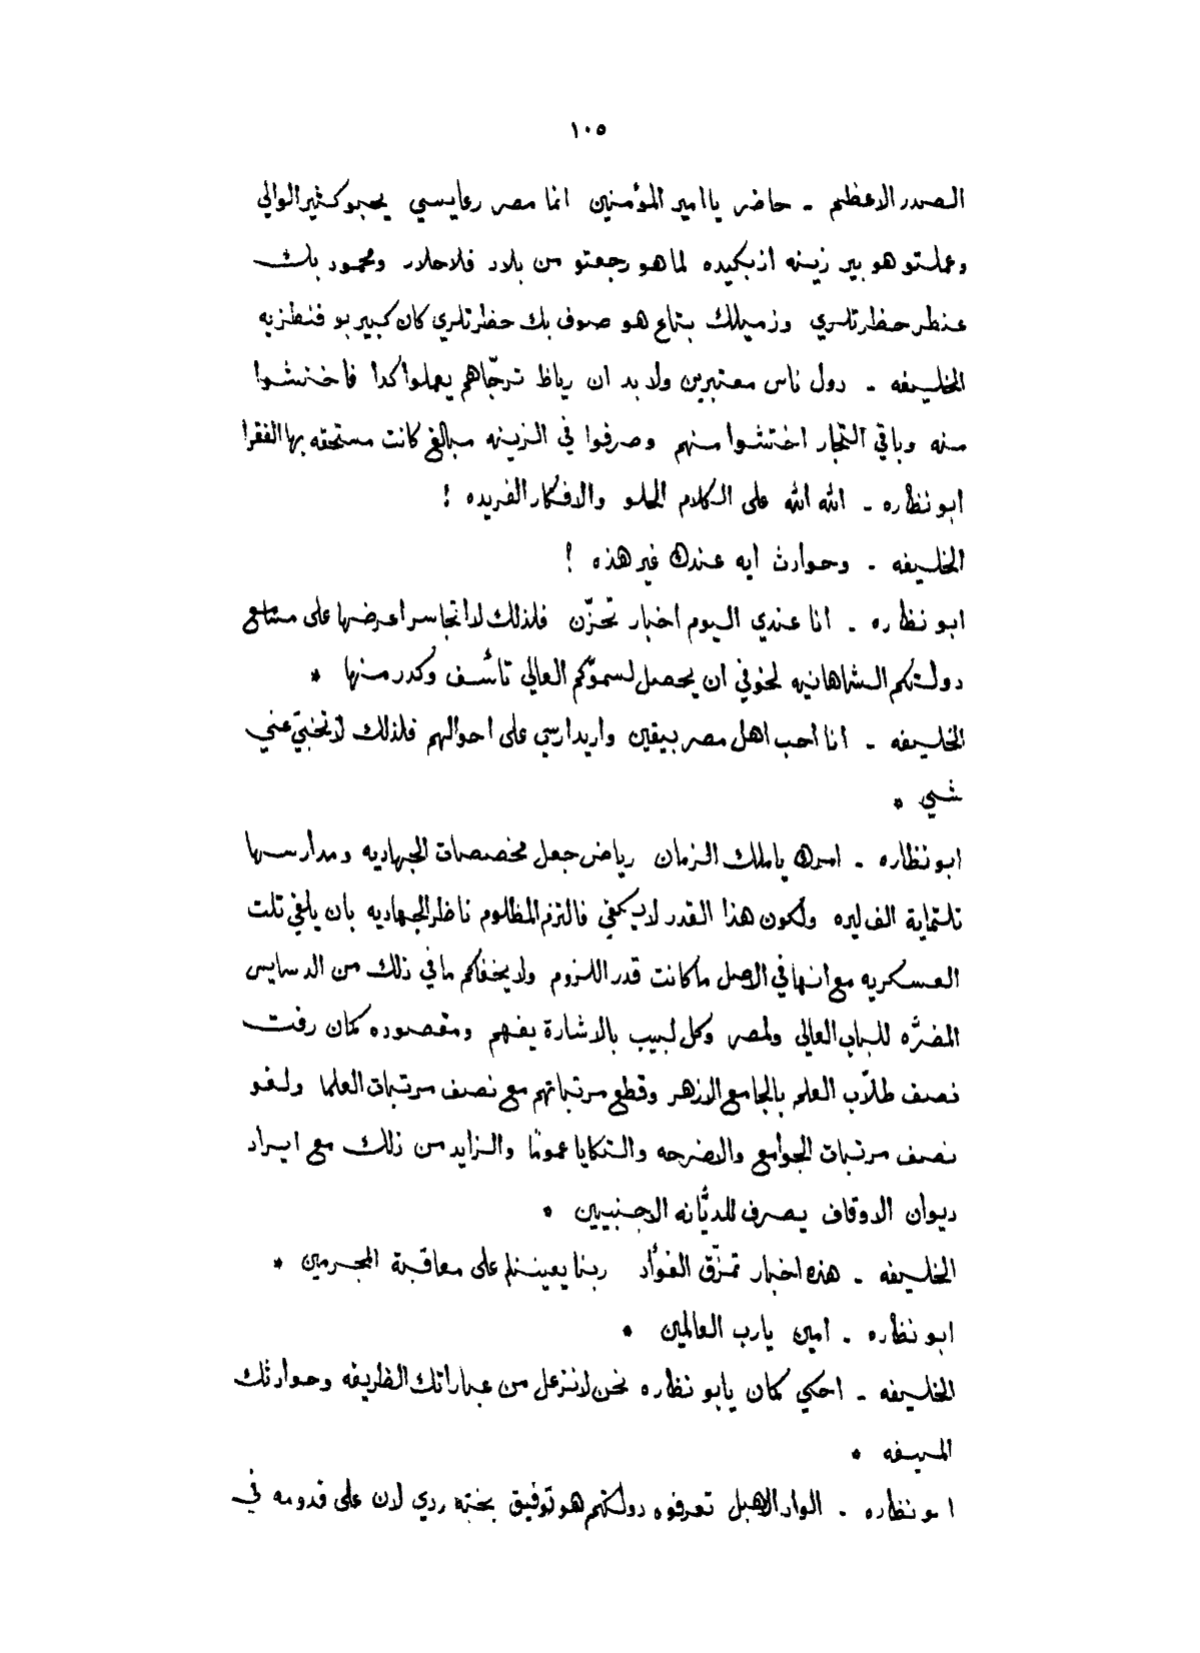 ١٠٥
الصدر الاعظم - حاضر يا امير المؤمنين انما مصر رعايسي يحبو كثير الوالي
وعملتو هو بير زينه ازبكيده لما هو رجعتو من بلاد فلاحلار ومحمود بك
عنطر حظرتلري وزميلك بتاع هو صوف بك حظرتلري كان كبير بو فنطزيه
الخليفه - دول ناس معتبرين ولا بد ان رياظ ترجّاهم يعملوا كدا فاختشوا
منه وباقي التجار اختشوا منهم وصرفوا في الزينه مبالغ كانت مستحقه بها الفقرا
ابو نظاره - الله الله على الكلام الحلو والافكار الفريده !
الخليفه - وحوادث ايه عندك غير هذه !
ابو نظاره - انا عندي اليوم اخبار تحزّن فلذلك لا اتجاسر اعرضها على مسامع
دولتكم الشاهانيه لخوفي ان يحصل لسموّكم العالي تأسّف وكدر منها *
الخليفه - انا احب اهل مصر بيقين واريد ارسي على احوالهم فلذلك لا تخبّي عني
شي *
ابو نظاره - امرك يا ملك الزمان رياض جعل مخصصات الجهاديه ومدارسها
تلتماية الف ليره ولكون هذا القدر لا يكفي فالتزم المظلوم ناظر الجهاديه بان يلغي تلت
العسكريه مع انها في الاصل ما كانت قدر اللزوم ولا يخفاكم ما في ذلك من الدسايس
المضرّه للباب العالي ولمصر وكل لبيب بالاشارة يفهم ومقصوده كمان رفت
نصف طلاّب العلم بالجامع الازهر وقطع مرتباتهم مع نصف مرتبات العلما ولغو
نصف مرتبات الجوامع والاضرحه والتكايا عمومًا والزايد من ذلك مع ايراد
ديوان الاوقاف يصرف للديّانه الاجنبيين *
الخليفه - هذه اخبار تمزّق الفؤاد ربنا يعيننا على معاقبة المجرمين *
ابو نظاره - امين يا رب العالمين *
الخليفه - احكي كمان يابو نظاره نحن لا نزعل من عباراتك الظريفه وحوادثك
المسيفه *
ابو نظاره - الواد الاهبل تعرفوه دولتكم هو توفيق بخته ردي لان على قدومه في